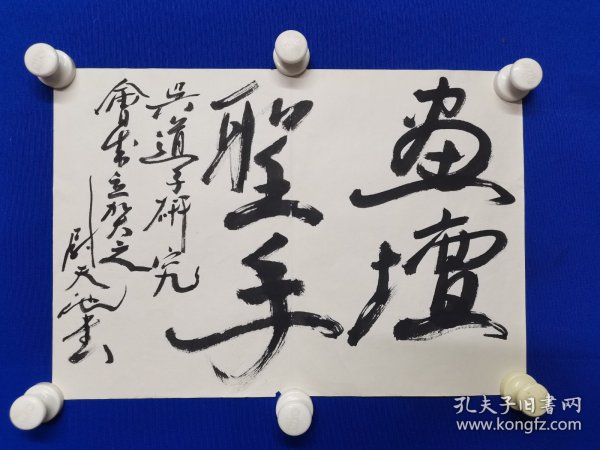 畫壇
聖手
吴道子研究
會成立贺之
尉天池書
孔夫子旧書网
www.kongfz.com